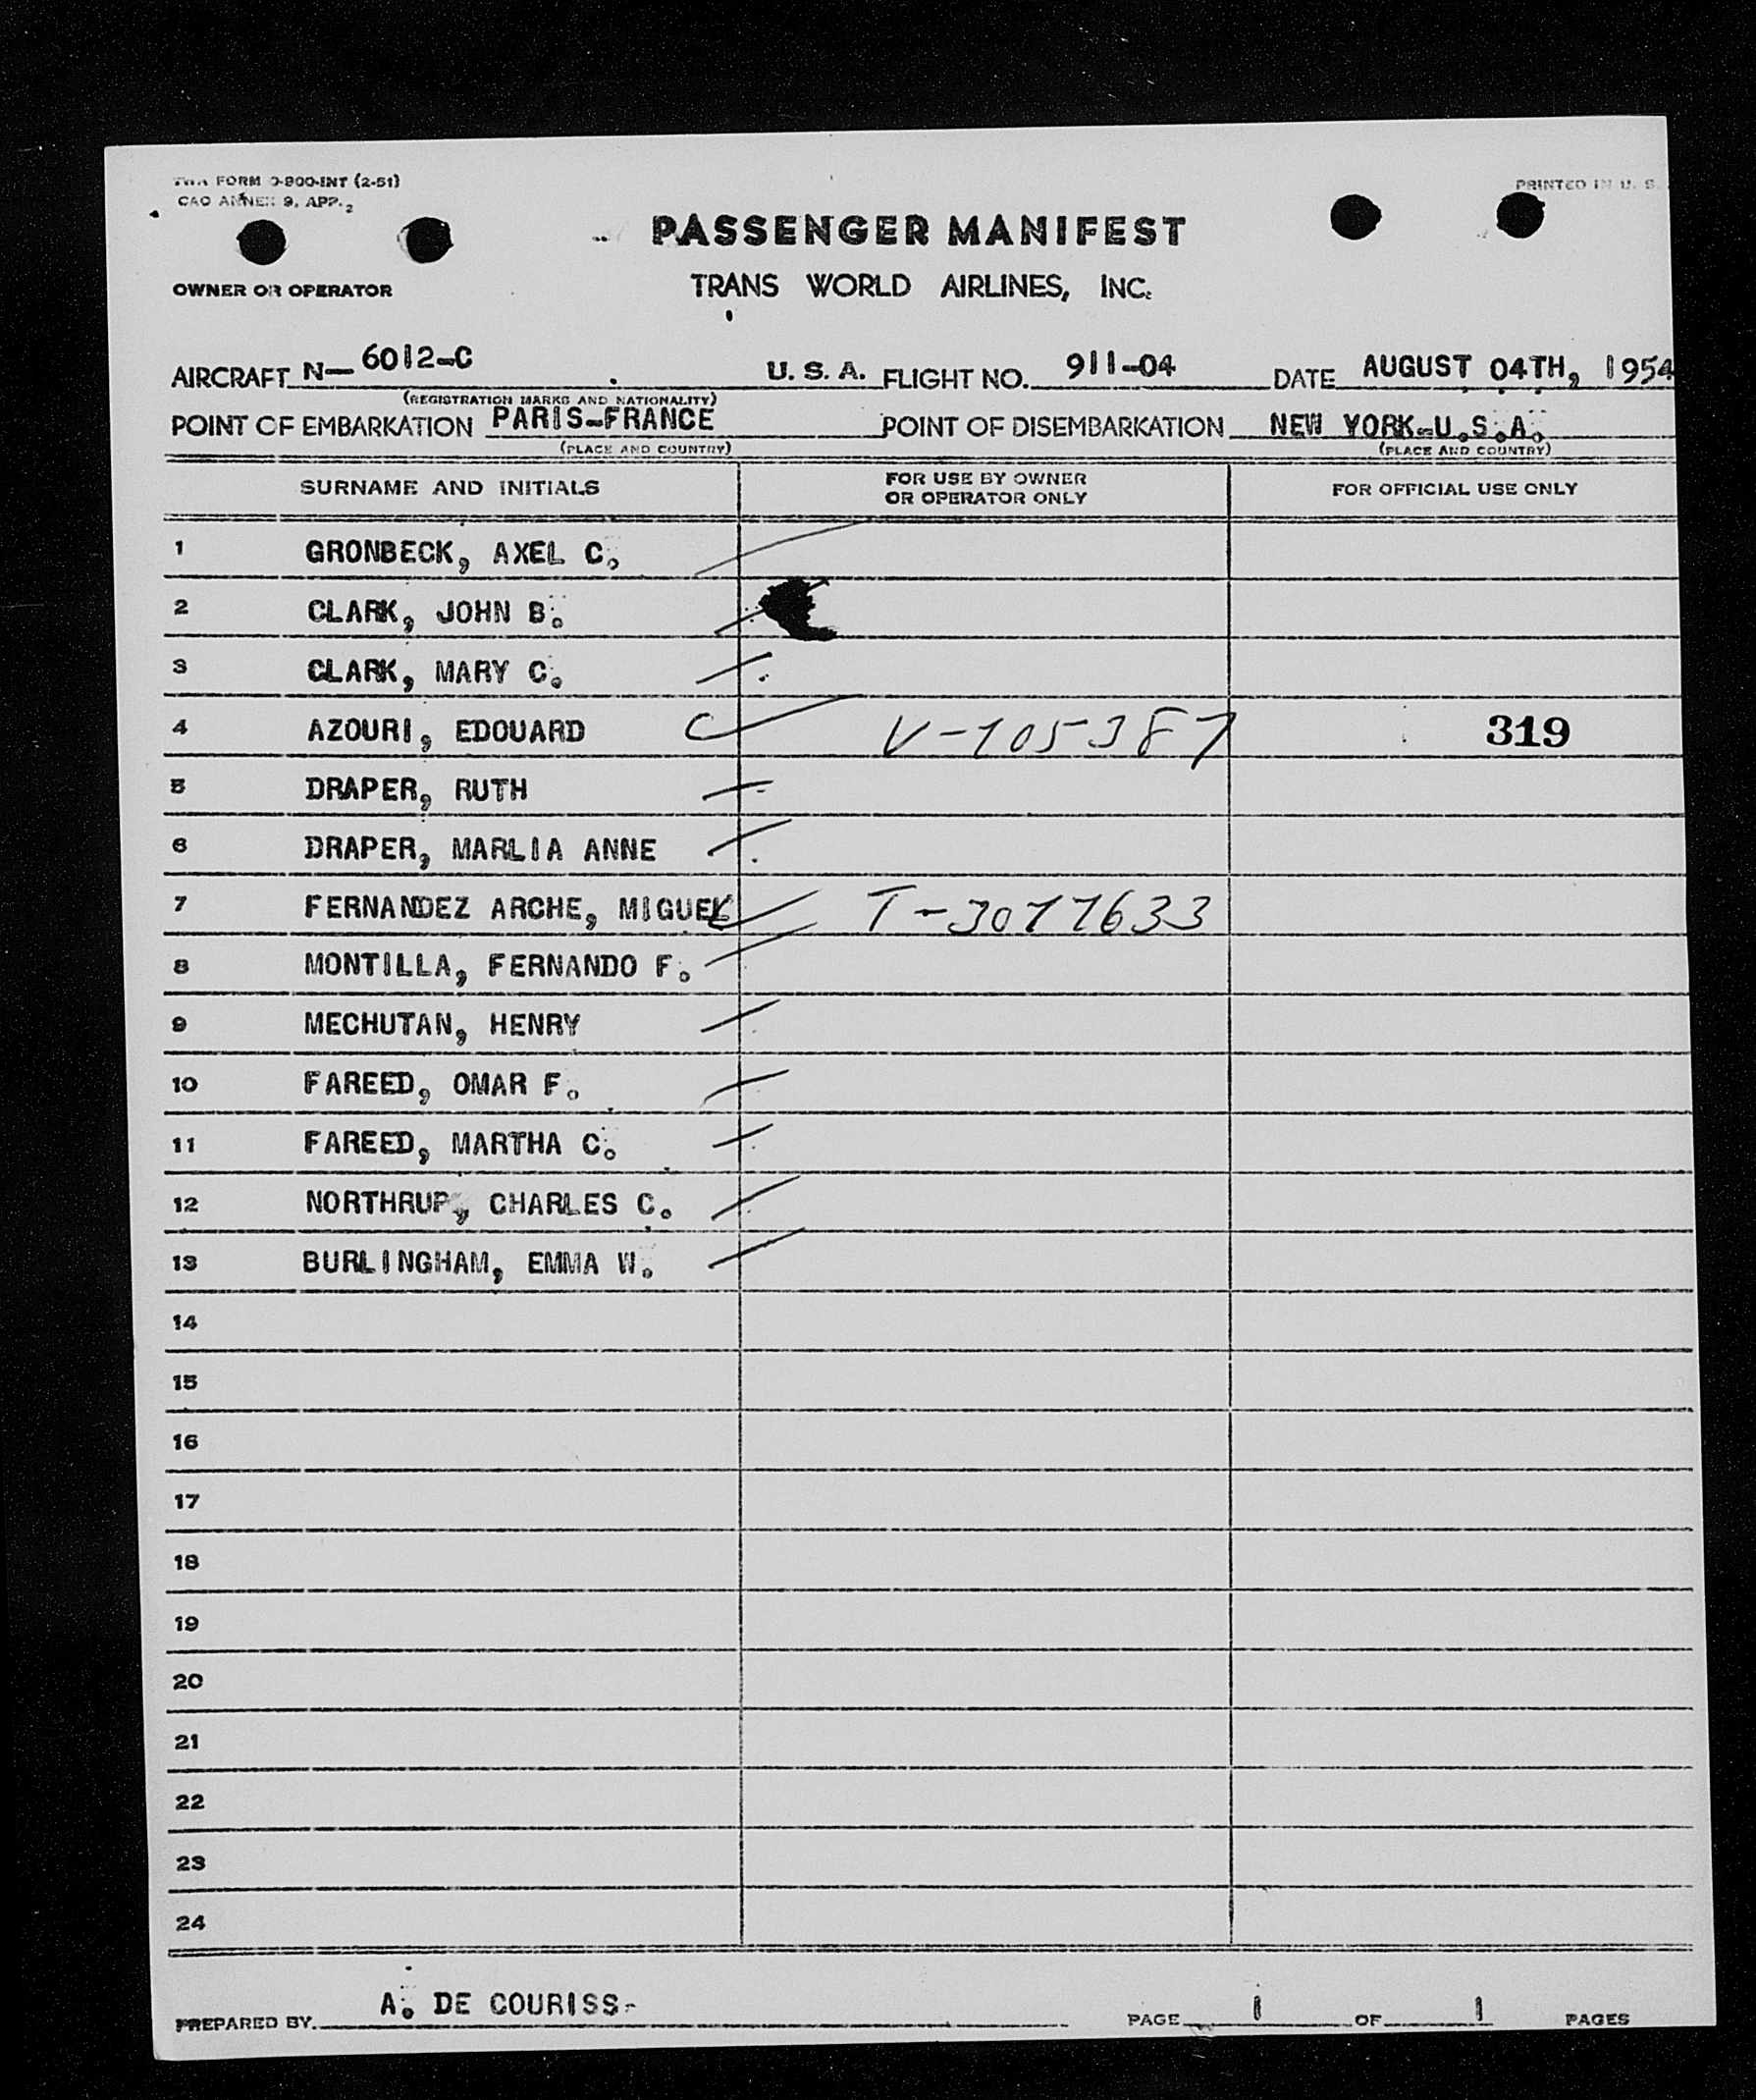 TWA FORM O-800-INT (2-51)
PRINTED IN U. S.
CAO ANNEX 9, APP. 2
PASSENGER MANIFEST
OWNER OR OPERATOR
TRANS WORLD AIRLINES, INC.
AIRCRAFT N— 6012-C U. S. A. FLIGHT NO. 911-04 DATE AUGUST 04TH, 1954
(REGISTRATION MARKS AND NATIONALITY)
POINT OF EMBARKATION PARIS-FRANCE POINT OF DISEMBARKATION NEW YORK-U.S.A.
(PLACE AND COUNTRY) (PLACE AND COUNTRY)
SURNAME AND INITIALS FOR USE BY OWNER OR OPERATOR ONLY FOR OFFICIAL USE ONLY
1 GRONBECK, AXEL C,
2 CLARK, JOHN B.
3 CLARK, MARY C.
4 AZOURI, EDOUARD C V-105387 319
5 DRAPER, RUTH
6 DRAPER, MARLIA ANNE
7 FERNANDEZ ARCHE, MIGUEL T-3077633
8 MONTILLA, FERNANDO F.
9 MECHUTAN, HENRY
10 FAREED, OMAR F.
11 FAREED, MARTHA C.
12 NORTHRUP, CHARLES C.
13 BURLINGHAM, EMMA W.
14
15
16
17
18
19
20
21
22
23
24
PREPARED BY. A. DE COURISS- PAGE 1 OF 1 PAGES